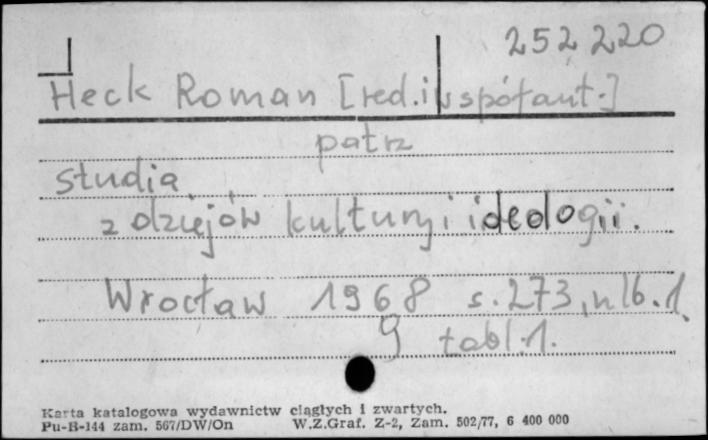 252 220
Heck Roman [red. i współaut.]
patrz
Studia
z dziejów kultury i ideologii.
Wrocław 1968 s. 273, nlb. 1.
9 tabl. 1.
Karta katalogowa wydawnictw ciągłych i zwartych.
Pu-B-144 zam. 567/DW/On W.Z.Graf. Z-2, Zam. 502/77, 6 400 000